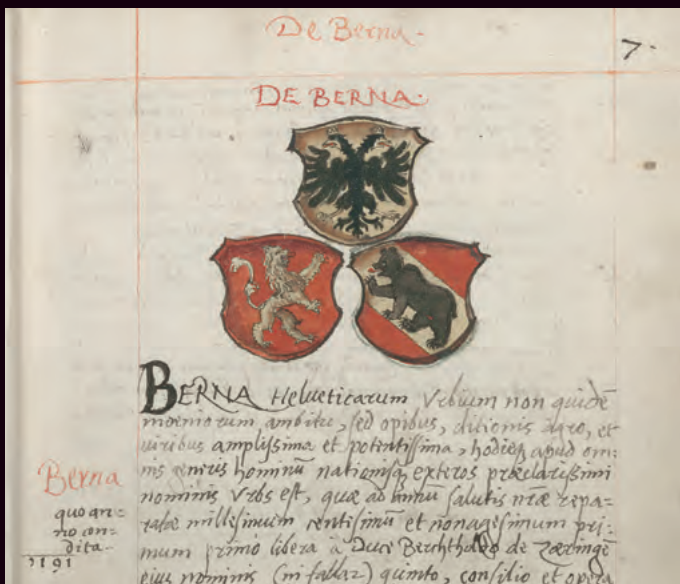 De Berna.
7.
DE BERNA.
BERNA Helveticarum Vrbium non quidē
moeniorum ambitu, sed opibus, ditionis agro, et
viribus amplissima et potentissima, hodieq, apud om=
nis generis hominū nationisq, exteros præclarissimi
nominis Vrbs est, quæ ad annū salutis nræ repa=
ratæ millesimum centesimū et nonagesimum pri=
mum primo libera à Duce Berchtholdo de Zæringē
eius nominis (ni fallar) quinto, consilio et opera
Berna
quo an=
no con=
dita.
1191